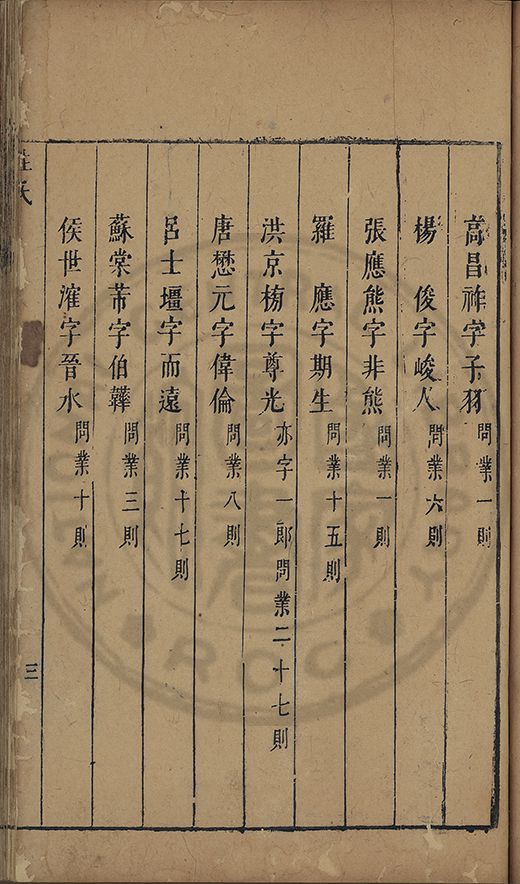 高昌祚字子羽問業一則
楊　俊字峻人問業六則
張應熊字非熊問業一則
羅　應字期生問業十五則
洪京榜字尊光亦字一郎問業二十七則
唐懋元字偉倫問業八則
呂士壇字而遠問業十七則
蘇棠芾字伯韡問業三則
侯世漼字晉水問業十則
氏
三